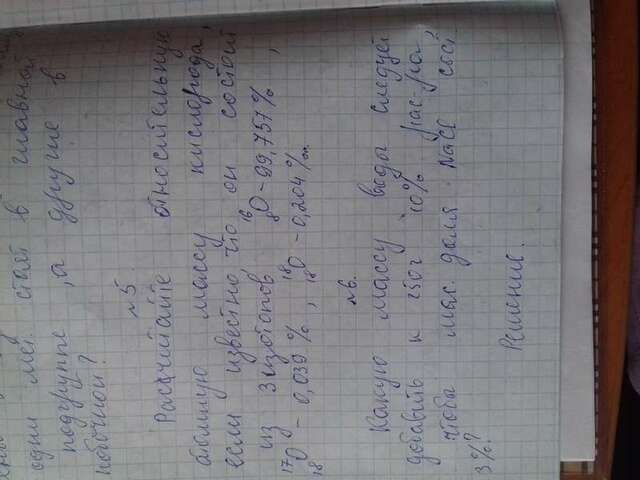 одни мет. стоят в главной
подгруппе, а другие в
побочной?
№5.
Рассчитайте относительную
атомную массу кислорода,
если известно, что он состоит
из 3 изотопов ¹⁶₈O - 99,757%,
¹⁷₁₈O - 0,039%, ¹⁸₁₈O - 0,204%
№6.
Какую массу воды следует
добавить к 250г 10% рас-ра,
чтобы мас. доля NaCl сост.
3%?
Решение.